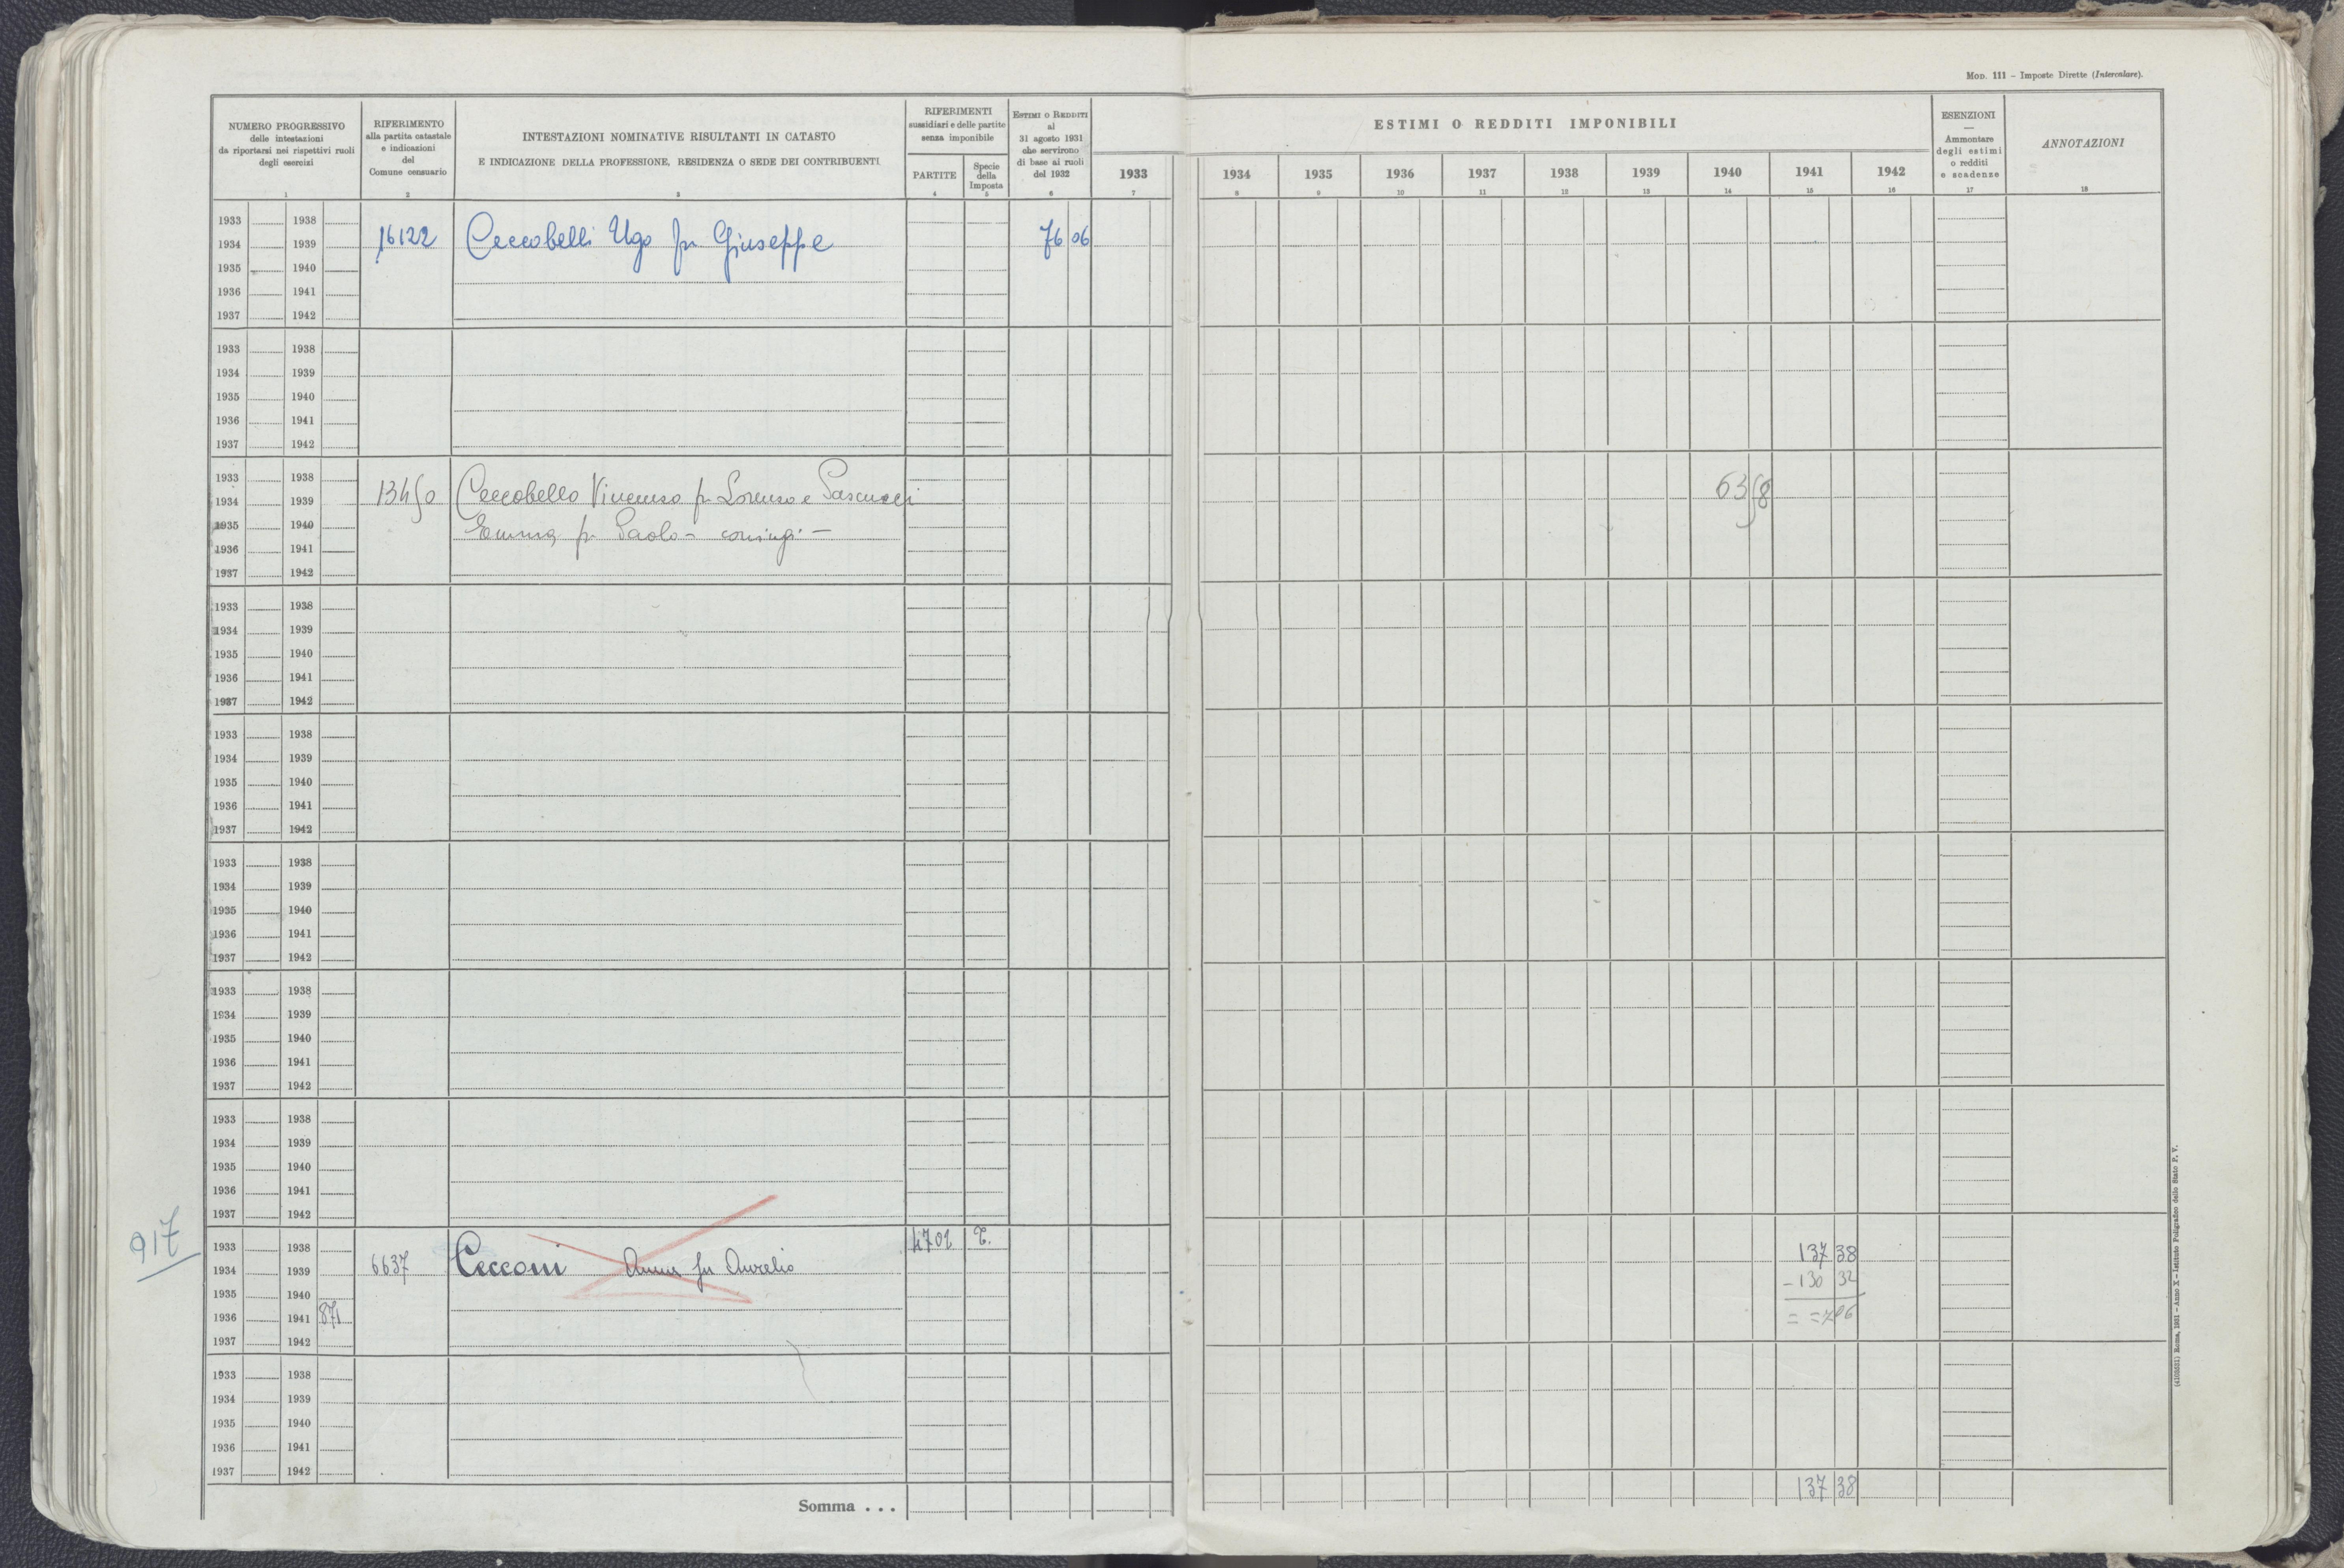 MOD. 111 – Imposte Dirette (Intercalare).
NUMERO PROGRESSIVO
delle intestazioni
da riportarsi nei rispettivi ruoli
degli esercizi
1
RIFERIMENTO
alla partita catastale
e indicazioni
del
Comune censuario
2
INTESTAZIONI NOMINATIVE RISULTANTI IN CATASTO
E INDICAZIONE DELLA PROFESSIONE, RESIDENZA O SEDE DEI CONTRIBUENTI
3
RIFERIMENTI
sussidiari e delle partite
senza imponibile
PARTITE
4
Specie
della
Imposta
5
ESTIMI O REDDITI
al
31 agosto 1931
che servirono
di base ai ruoli
del 1932
6
ESTIMI O REDDITI IMPONIBILI
1933 1934 1935 1936 1937 1938 1939 1940 1941 1942
7 8 9 10 11 12 13 14 15 16
ESENZIONI
—
Ammontare
degli estimi
o redditi
e scadenze
17
ANNOTAZIONI
18
1933 1938
1934 1939 16122 Ceccobelli Ugo fu Giuseppe 76 06
1935 1940
1936 1941
1937 1942
1933 1938
1934 1939
1935 1940
1936 1941
1937 1942
1933 1938
1934 1939 13450 Ceccobello Vincenzo fu Lorenzo e Pascucci 63 58
1935 1940 Emma fu Paolo – coniugi –
1936 1941
1937 1942
1933 1938
1934 1939
1935 1940
1936 1941
1937 1942
1933 1938
1934 1939
1935 1940
1936 1941
1937 1942
1933 1938
1934 1939
1935 1940
1936 1941
1937 1942
1933 1938
1934 1939
1935 1940
1936 1941
1937 1942
1933 1938
1934 1939
1935 1940
1936 1941
1937 1942
917
1933 1938 4702 T. 137 38
1934 1939 6637 Cecconi Anna fu Aurelio – 130 32
1935 1940
1936 1941 871 = = 7 06
1937 1942
1933 1938
1934 1939
1935 1940
1936 1941
1937 1942
Somma . . . 137 38
Roma, 1931 – Anno X – Istituto Poligrafico dello Stato P. V.